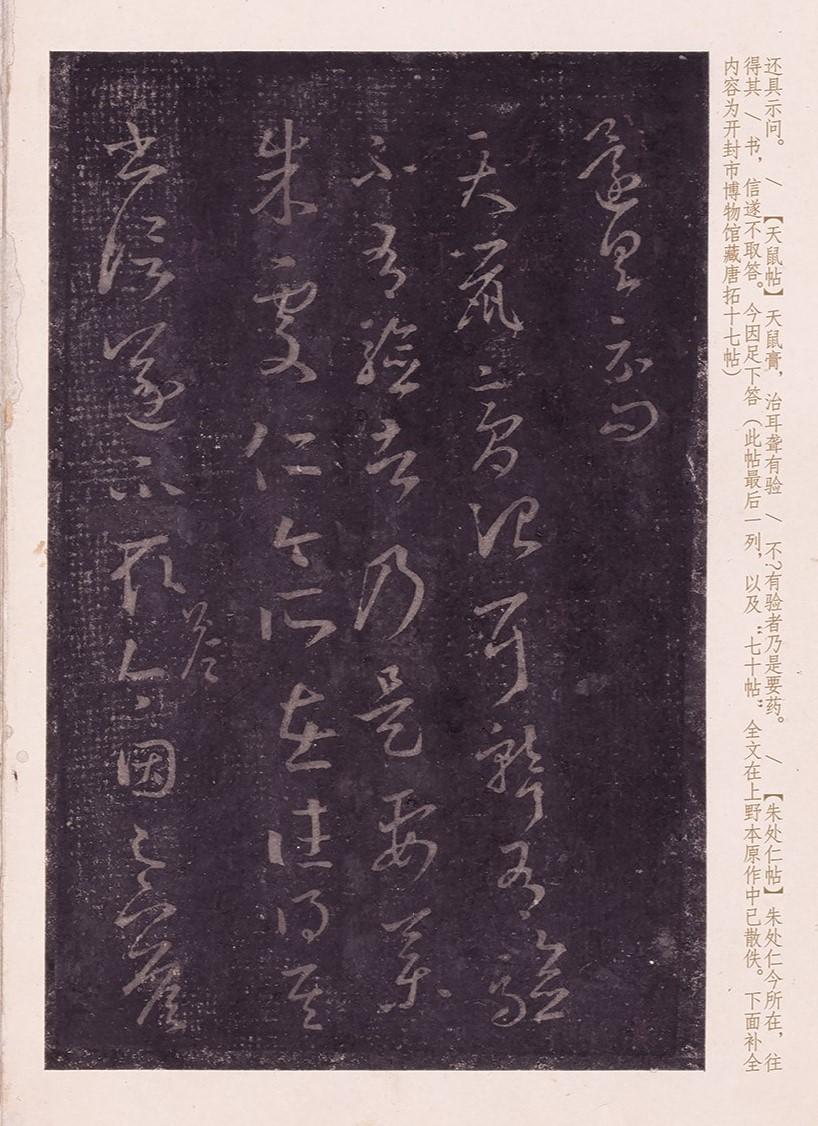 还具示问。 / 【天鼠帖】天鼠膏，治耳聋有验 / 不?有验者乃是要药。 / 【朱处仁帖】朱处仁今所在，往
得其 / 书，信遂不取答。今因足下答（此帖最后一列，以及“七十帖”全文在上野本原作中已散佚。下面补全
内容为开封市博物馆藏唐拓十七帖）
還具示問
天鼠膏治耳聾有驗
不有驗者乃是要藥
朱處仁今所在往得其
書信遂不取答今因足下答